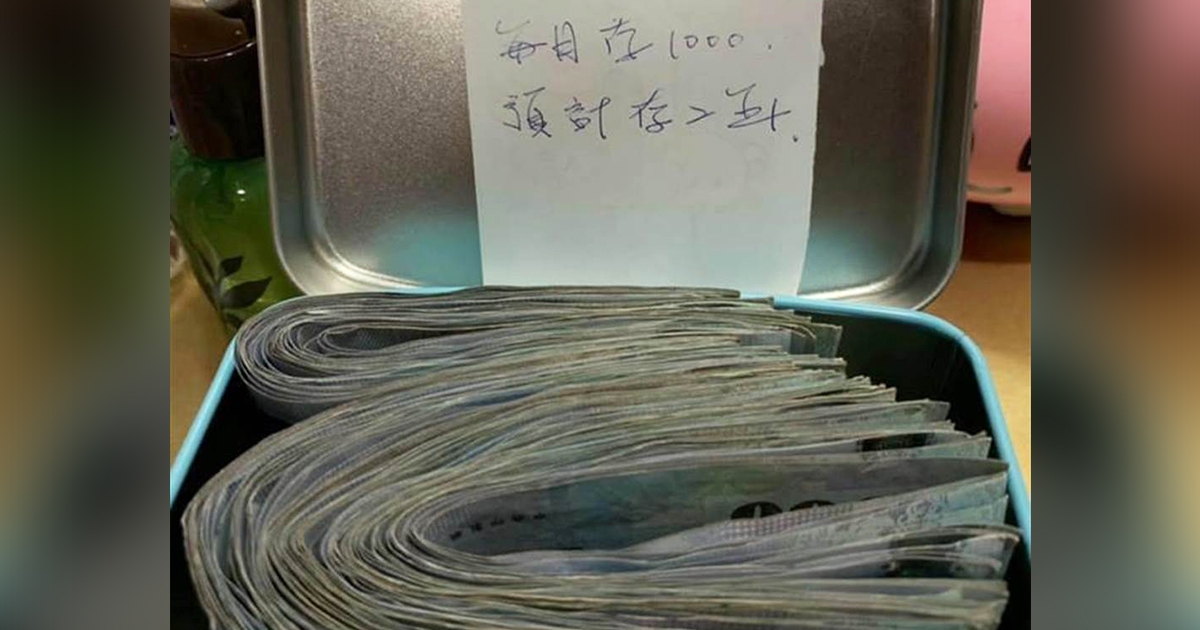 每月存1000.
預計存